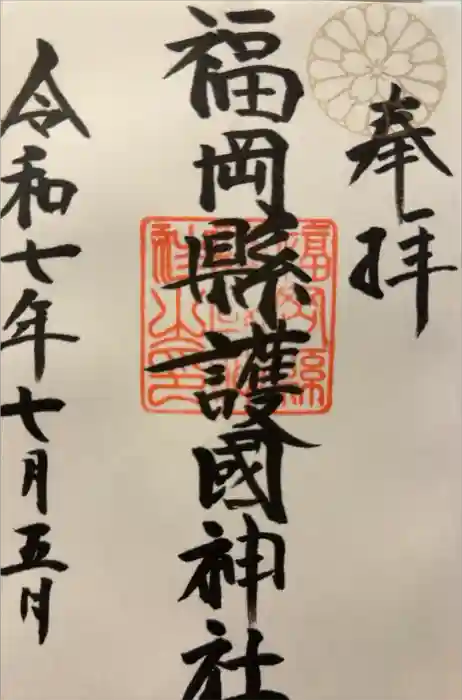 奉拝
福岡縣護國神社
令和七年七月五日